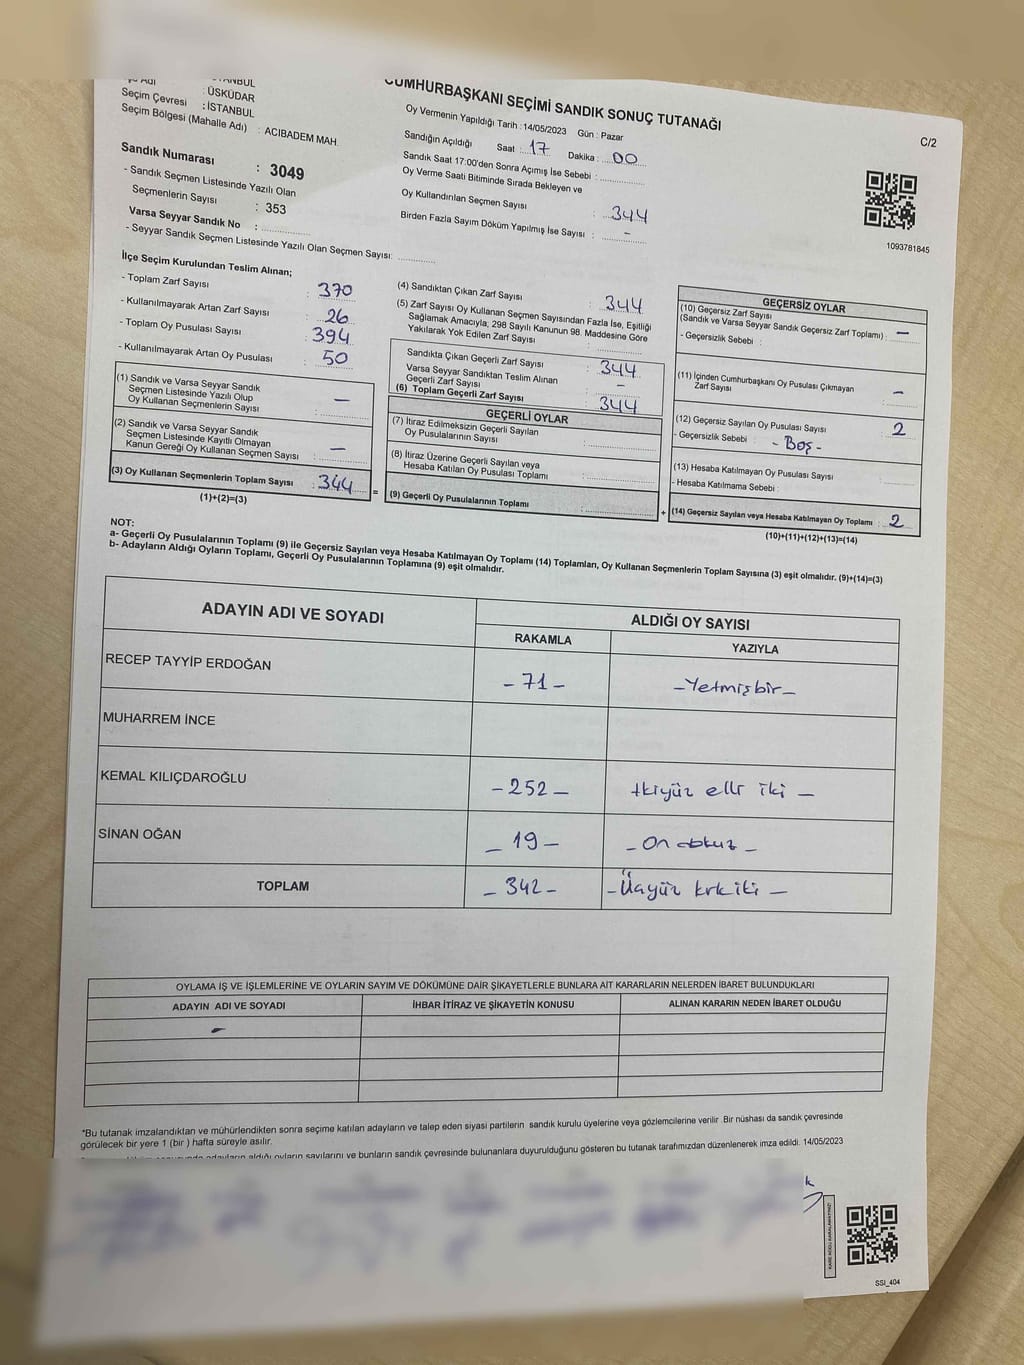 CUMHURBAŞKANI SEÇİMİ SANDIK SONUÇ TUTANAĞI
C/2
: ÜSKÜDAR
Seçim Çevresi : İSTANBUL
Seçim Bölgesi (Mahalle Adı) : ACIBADEM MAH.
Oy Vermenin Yapıldığı Tarih : 14/05/2023 Gün : Pazar
Sandığın Açıldığı Saat : 17 Dakika : 00
Sandık Saat 17:00'den Sonra Açımış İse Sebebi :
Oy Verme Saati Bitiminde Sırada Bekleyen ve
Oy Kullandırılan Seçmen Sayısı : 344
Birden Fazla Sayım Döküm Yapılmış İse Sayısı : -
1093781845
Sandık Numarası : 3049
- Sandık Seçmen Listesinde Yazılı Olan
Seçmenlerin Sayısı : 353
Varsa Seyyar Sandık No :
- Seyyar Sandık Seçmen Listesinde Yazılı Olan Seçmen Sayısı:
İlçe Seçim Kurulundan Teslim Alınan;
- Toplam Zarf Sayısı : 370
- Kullanılmayarak Artan Zarf Sayısı : 26
- Toplam Oy Pusulası Sayısı : 394
- Kullanılmayarak Artan Oy Pusulası : 50
(1) Sandık ve Varsa Seyyar Sandık
Seçmen Listesinde Yazılı Olup
Oy Kullanan Seçmenlerin Sayısı : -
(2) Sandık ve Varsa Seyyar Sandık
Seçmen Listesinde Kayıtlı Olmayan
Kanun Gereği Oy Kullanan Seçmen Sayısı : -
(3) Oy Kullanan Seçmenlerin Toplam Sayısı : 344 =
(1)+(2)=(3)
(4) Sandıktan Çıkan Zarf Sayısı : 344
(5) Zarf Sayısı Oy Kullanan Seçmen Sayısından Fazla İse, Eşitliği
Sağlamak Amacıyla, 298 Sayılı Kanunun 98. Maddesine Göre
Yakılarak Yok Edilen Zarf Sayısı :
Sandıkta Çıkan Geçerli Zarf Sayısı : 344
Varsa Seyyar Sandıktan Teslim Alınan
Geçerli Zarf Sayısı : -
(6) Toplam Geçerli Zarf Sayısı : 344
GEÇERLİ OYLAR
(7) İtiraz Edilmeksizin Geçerli Sayılan
Oy Pusulalarının Sayısı :
(8) İtiraz Üzerine Geçerli Sayılan veya
Hesaba Katılan Oy Pusulası Toplamı :
(9) Geçerli Oy Pusulalarının Toplamı : +
GEÇERSİZ OYLAR
(10) Geçersiz Zarf Sayısı
(Sandık ve Varsa Seyyar Sandık Geçersiz Zarf Toplamı) : -
- Geçersizlik Sebebi :
(11) İçinden Cumhurbaşkanı Oy Pusulası Çıkmayan
Zarf Sayısı : -
(12) Geçersiz Sayılan Oy Pusulası Sayısı : 2
- Geçersizlik Sebebi : - Boş -
(13) Hesaba Katılmayan Oy Pusulası Sayısı :
- Hesaba Katılmama Sebebi :
(14) Geçersiz Sayılan veya Hesaba Katılmayan Oy Toplamı : 2
(10)+(11)+(12)+(13)=(14)
NOT:
a- Geçerli Oy Pusulalarının Toplamı (9) ile Geçersiz Sayılan veya Hesaba Katılmayan Oy Toplamı (14) Toplamları, Oy Kullanan Seçmenlerin Toplam Sayısına (3) eşit olmalıdır. (9)+(14)=(3)
b- Adayların Aldığı Oyların Toplamı, Geçerli Oy Pusulalarının Toplamına (9) eşit olmalıdır.
ADAYIN ADI VE SOYADI
ALDIĞI OY SAYISI
RAKAMLA YAZIYLA
RECEP TAYYİP ERDOĞAN - 71 - - Yetmişbir -
MUHARREM İNCE
KEMAL KILIÇDAROĞLU - 252 - ikiyüz elli iki -
SİNAN OĞAN - 19 - - On dokuz -
TOPLAM - 342 - - Üçyüz kırk iki -
OYLAMA İŞ VE İŞLEMLERİNE VE OYLARIN SAYIM VE DÖKÜMÜNE DAİR ŞİKAYETLERLE BUNLARA AİT KARARLARIN NELERDEN İBARET BULUNDUKLARI
ADAYIN ADI VE SOYADI İHBAR İTİRAZ VE ŞİKAYETİN KONUSU ALINAN KARARIN NEDEN İBARET OLDUĞU
-
*Bu tutanak imzalandıktan ve mühürlendikten sonra seçime katılan adayların ve talep eden siyasi partilerin sandık kurulu üyelerine veya gözlemcilerine verilir .Bir nüshası da sandık çevresinde
görülecek bir yere 1 (bir ) hafta süreyle asılır.
adayların aldığı oyların sayılarını ve bunların sandık çevresinde bulunanlara duyurulduğunu gösteren bu tutanak tarafımızdan düzenlenerek imza edildi. 14/05/2023
SSI_404